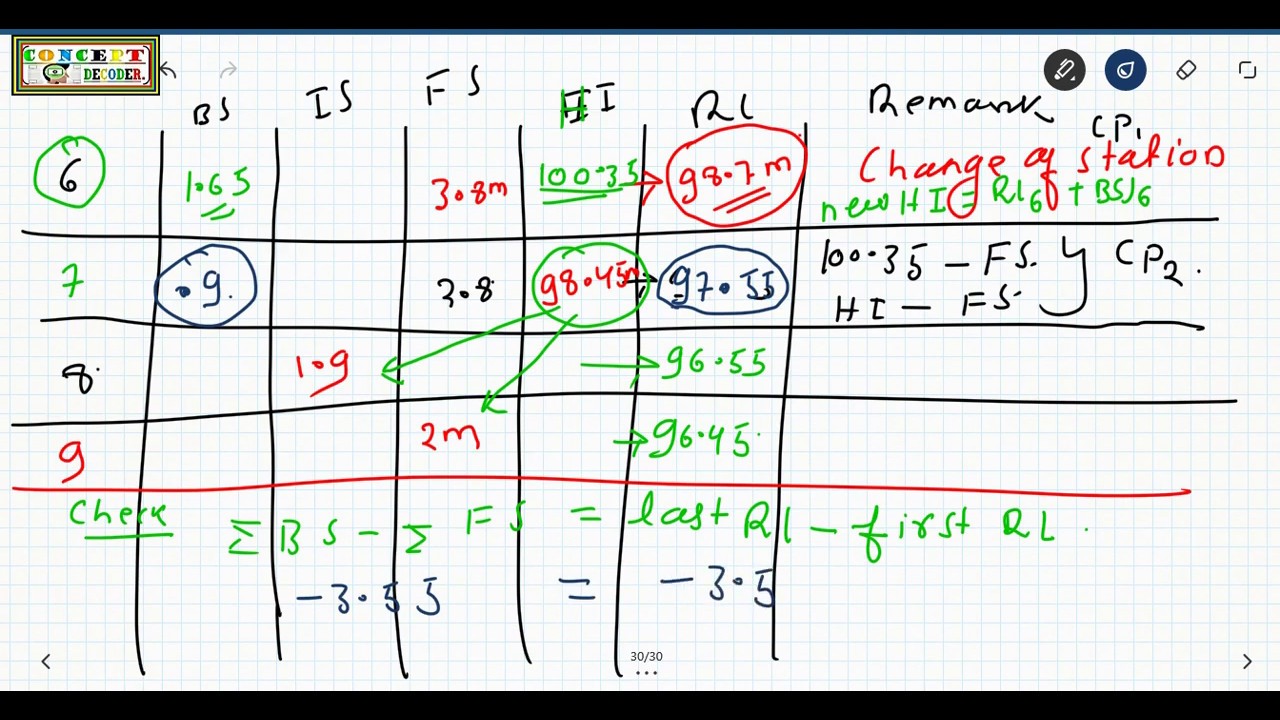 CONCEPT
DECODER.
BS IS FS HI RL Remark
6 1.65 3.8m 100.35 98.7m CP1
Change of station
new HI = RL6 + BS)6
7 .9. 3.8 98.45m 97.55 100.35 - FS. } CP2.
HI - FS
8. 1.9 96.55
9 2m 96.45
Check Σ BS - Σ FS = last RL - first RL.
-3.55 = -3.5
30/30